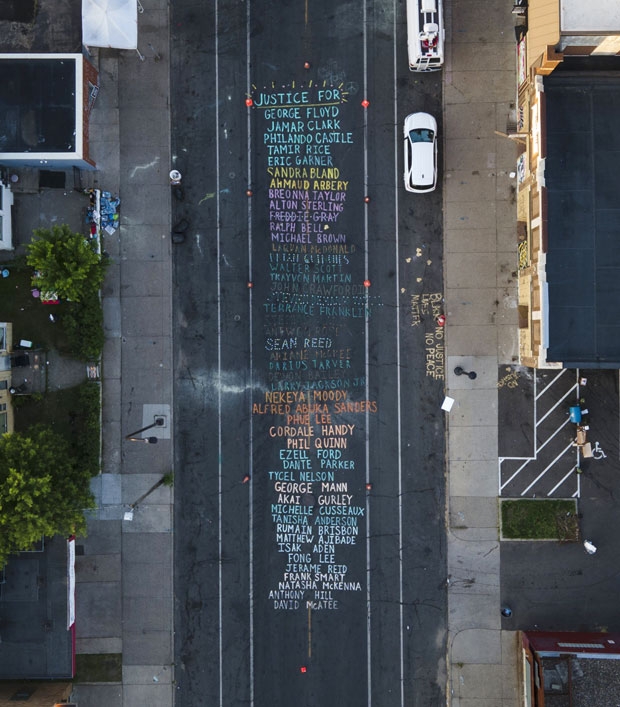 JUSTICE FOR
GEORGE FLOYD
JAMAR CLARK
PHILANDO CASTILE
TAMIR RICE
ERIC GARNER
SANDRA BLAND
AHMAUD ARBERY
BREONNA TAYLOR
ALTON STERLING
FREDDIE GRAY
RALPH BELL
MICHAEL BROWN
LAQUAN MCDONALD
WALTER SCOTT
TRAYVON MARTIN
JOHN CRAWFORD
TERRANCE FRANKLIN
SEAN REED
DARIUS TARVER
LARRY JACKSON JR
NEKEYA MOODY
ALFRED ABUKA SANDERS
PHUE LEE
CORDALE HANDY
PHIL QUINN
EZELL FORD
DANTE PARKER
TYCEL NELSON
GEORGE MANN
AKAI GURLEY
MICHELLE CUSSEAUX
TANISHA ANDERSON
RUMAIN BRISBON
MATTHEW AJIBADE
ISAK ADEN
FONG LEE
JERAME REID
FRANK SMART
NATASHA McKENNA
ANTHONY HILL
DAVID McATEE
BLACK
LIVES
MATTER
NO JUSTICE
NO PEACE